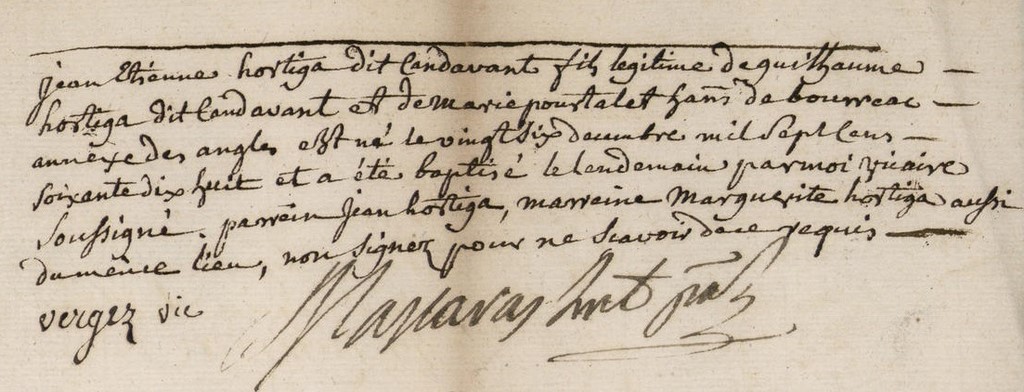 jean Etienne hortiga dit Candavant fils legitime de guilhaume —
hortiga dit Candavant et de marie pourtalet hans de bourreac —
annexe des angles est né le vingt six decembre mil Sept Cens —
soixante dix huit et a été baptisé le lendemain par moi vicaire
soussigné. parrein jean hortiga, marreine marguerite hortiga aussi
du même lieu, non signez pour ne scavoir de ce requis —
vergez vic